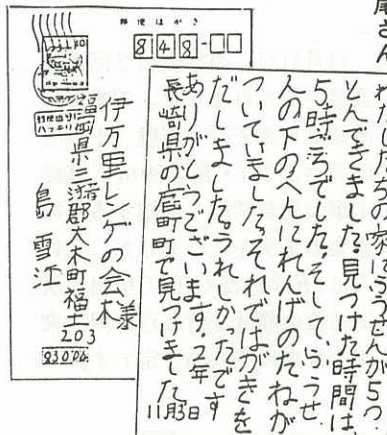 郵便はがき
848-
伊万里レンゲの会 様
福岡県三潴郡大木町福土203
島 雪江
830-04
尾さん
わたしたちの家にふうせんが5つ
とんできました。見つけた時間は、
5時ごろでした。そして、ふうせ
んの下のへんにれんげのたねが
ついていました。それではがきを
だしました。うれしかったです
ありがとうございます。2年
長崎県の庭町町で見つけました
11月3日